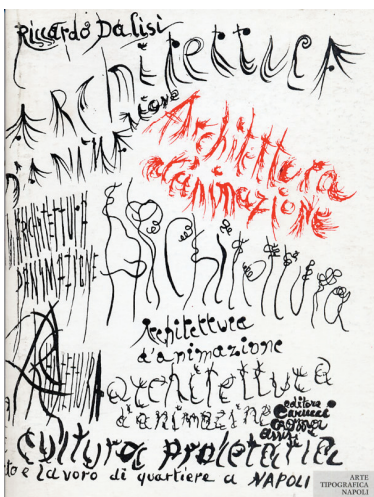 Riccardo Dalisi
ARchitettura
ARchitettura
D'ANiMAzione
Architettura
d'animazione
ARCHITETTURA
DANIMAZIONE
ARchitettura
Architettura
d'animazione
Architettura
d'animazione
editore
carucci
assisi
cultura proletaria
e lavoro di quartiere a NAPOLI
ARTE
TIPOGRAFICA
NAPOLI